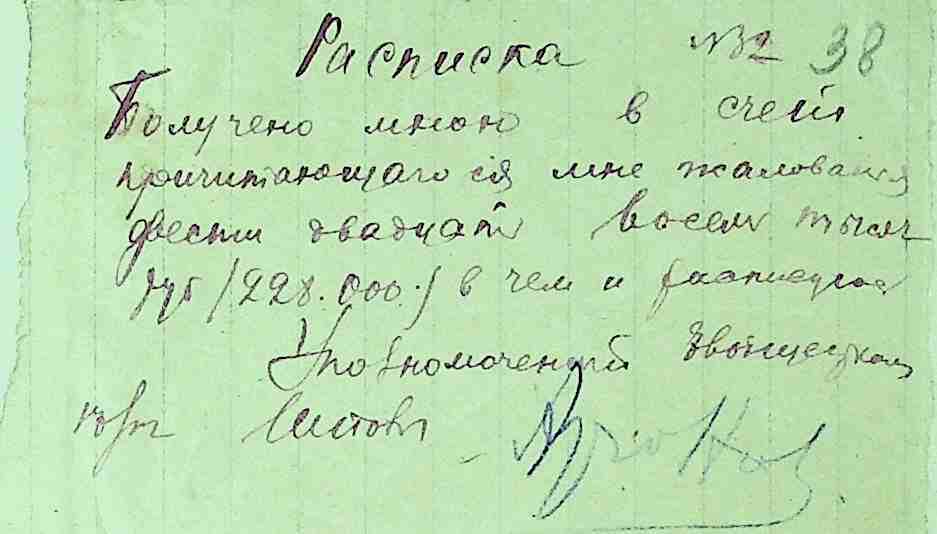 Расписка №2 38
Получено мною в счет
причитающагося мне жалования
двести двадцать восем тысяч
руб /228.000./ в чем и расписуюсь
Уполномоченый